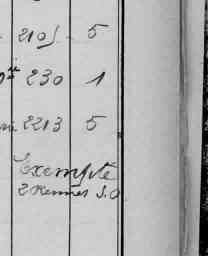 210 5
230 1
2213 5
Exempte
2 Rennes S.O